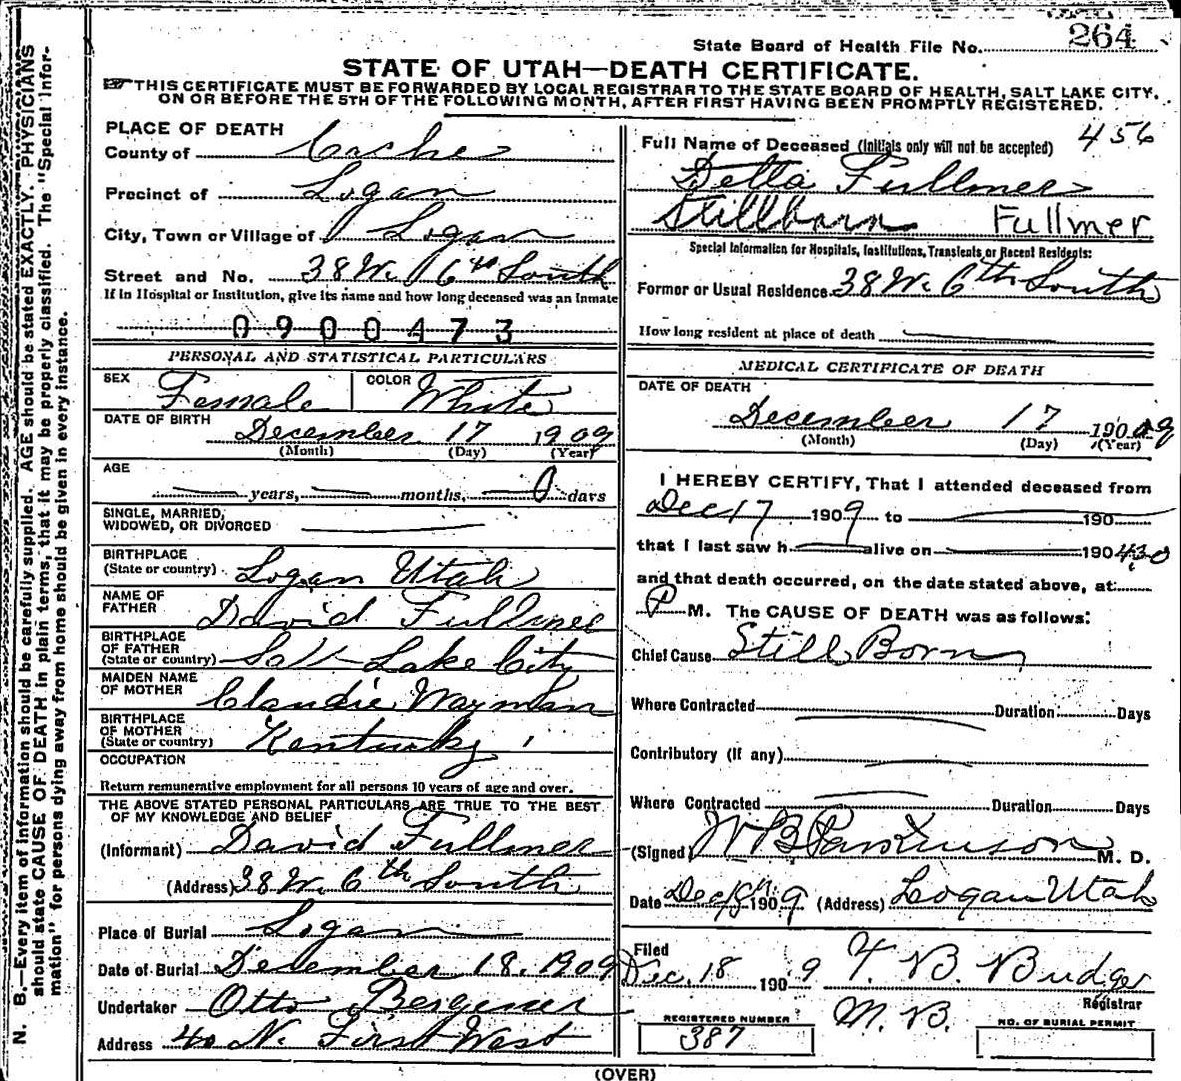 State Board of Health File No. 264
STATE OF UTAH—DEATH CERTIFICATE.
THIS CERTIFICATE MUST BE FORWARDED BY LOCAL REGISTRAR TO THE STATE BOARD OF HEALTH, SALT LAKE CITY,
ON OR BEFORE THE 5TH OF THE FOLLOWING MONTH, AFTER FIRST HAVING BEEN PROMPTLY REGISTERED.
PLACE OF DEATH
County of Cache
Precinct of Logan
City, Town or Village of Logan
Street and No. 38 W. 6th South
If in Hospital or Institution, give its name and how long deceased was an inmate
0900473
PERSONAL AND STATISTICAL PARTICULARS
SEX Female COLOR White
DATE OF BIRTH
December 17 1909
(Month) (Day) (Year)
AGE
years, months, 0 days
SINGLE, MARRIED,
WIDOWED, OR DIVORCED
BIRTHPLACE
(State or country) Logan Utah
NAME OF
FATHER David Fullmer
BIRTHPLACE
OF FATHER
(State or country) Salt Lake City
MAIDEN NAME
OF MOTHER Claudie Wayman
BIRTHPLACE
OF MOTHER
(State or country) Kentucky
OCCUPATION
Return remunerative employment for all persons 10 years of age and over.
THE ABOVE STATED PERSONAL PARTICULARS ARE TRUE TO THE BEST
OF MY KNOWLEDGE AND BELIEF
(Informant) David Fullmer
(Address) 38 W. 6th South
Place of Burial Logan
Date of Burial December 18, 1909
Undertaker Otto
Address 40 N. First West
456
Full Name of Deceased (Initials only will not be accepted)
Della Fullmer
Stillborn Fullmer
Special Information for Hospitals, Institutions, Transients or Recent Residents:
Former or Usual Residence 38 W. 6th South
How long resident at place of death
MEDICAL CERTIFICATE OF DEATH
DATE OF DEATH
December 17 1909
(Month) (Day) (Year)
I HEREBY CERTIFY, That I attended deceased from
Dec 17 1909 to 190
that I last saw h alive on 190 4:30
and that death occurred, on the date stated above, at
P M. The CAUSE OF DEATH was as follows:
Chief Cause Still Born
Where Contracted Duration Days
Contributory (If any)
Where Contracted Duration Days
(Signed) W B Parkinson M. D.
Date Dec 18th 1909 (Address) Logan Utah
Filed
Dec. 18 1909 T. B. Budge
Registrar
M. B.
REGISTERED NUMBER
387
NO. OF BURIAL PERMIT
(OVER)
N. B.—Every item of information should be carefully supplied. AGE should be stated EXACTLY. PHYSICIANS
should state CAUSE OF DEATH in plain terms, that it may be properly classified. The "Special Infor-
mation" for persons dying away from home should be given in every instance.